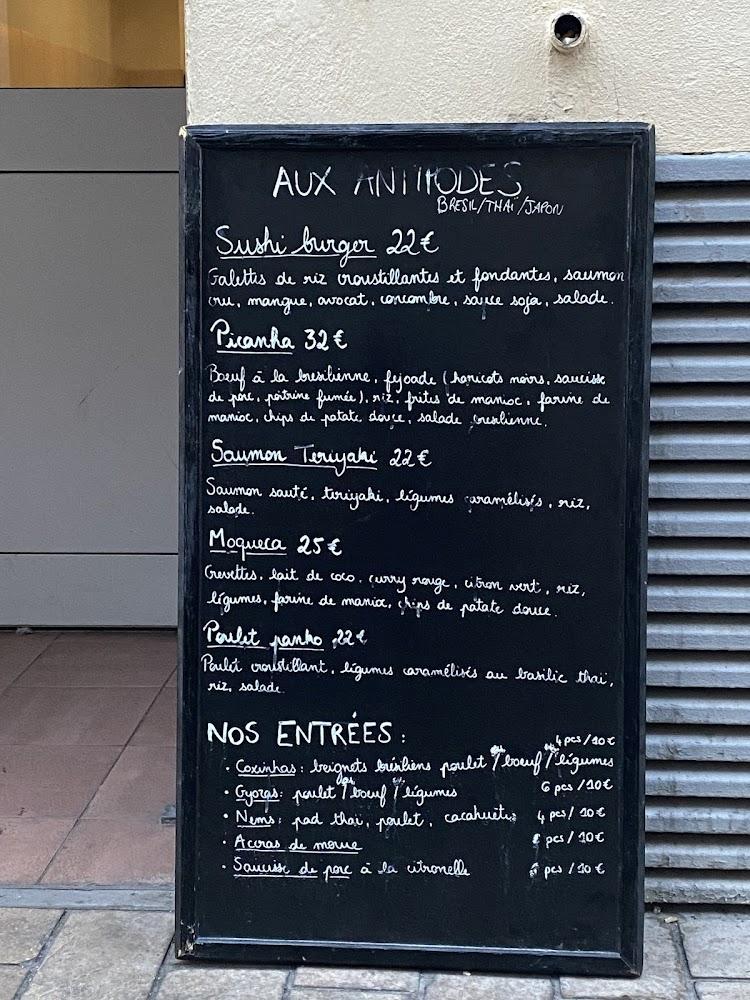 AUX ANTIPODES
BRESIL/THAÏ/JAPON
Sushi burger 22€
Galettes de riz croustillantes et fondantes, saumon
cru, mangue, avocat, concombre, sauce soja, salade.
Picanha 32€
Boeuf à la bresilienne, fejoade (haricots noirs, saucisse
de porc, poitrine fumée), riz, frites de manioc, farine de
manioc, chips de patate douce, salade bresilienne.
Saumon Teriyaki 22€
Saumon sauté, teriyaki, légumes caramélisés, riz,
salade.
Moqueca 25€
Crevettes, lait de coco, curry rouge, citron vert, riz,
légumes, farine de manioc, chips de patate douce.
Poulet panko 22€
Poulet croustillant, légumes caramélisés au basilic thai,
riz, salade.
NOS ENTRÉES:
4 pcs/10€
• Coxinhas: beignets brésiliens poulet / boeuf / légumes
• Gyozas: poulet / boeuf / légumes 6 pcs/10€
• Nems: pad thai, poulet, cacahuètes 4 pcs/10€
• Accras de morue pcs/10€
• Saucisse de porc à la citronelle pcs/10€